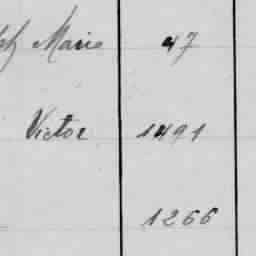 Marie 47
Victor 1491
1266